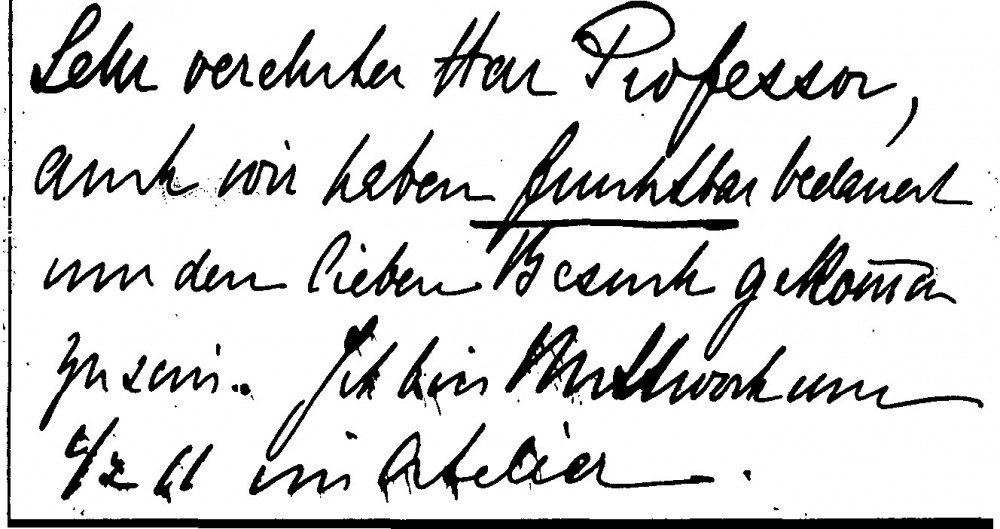 Sehr verehrter Herr Professor,
auch wir haben furchtbar bedauert
um den lieben Besuch gekommen
zu sein. Ich bin Mittwoch um
1/2 11 im Atelier.